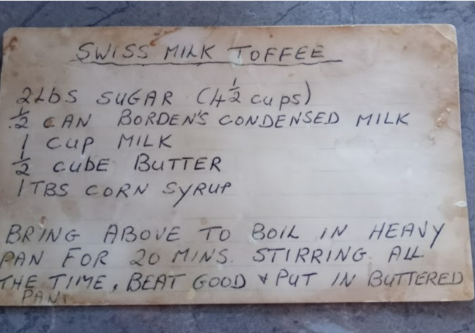 SWISS MILK TOFFEE
2LBS SUGAR (4½ cups)
½ CAN BORDEN'S CONDENSED MILK
1 CUP MILK
½ CUBE BUTTER
1 TBS CORN SYRUP
BRING ABOVE TO BOIL IN HEAVY
PAN FOR 20 MINS. STIRRING ALL
THE TIME, BEAT GOOD & PUT IN BUTTERED
PAN.